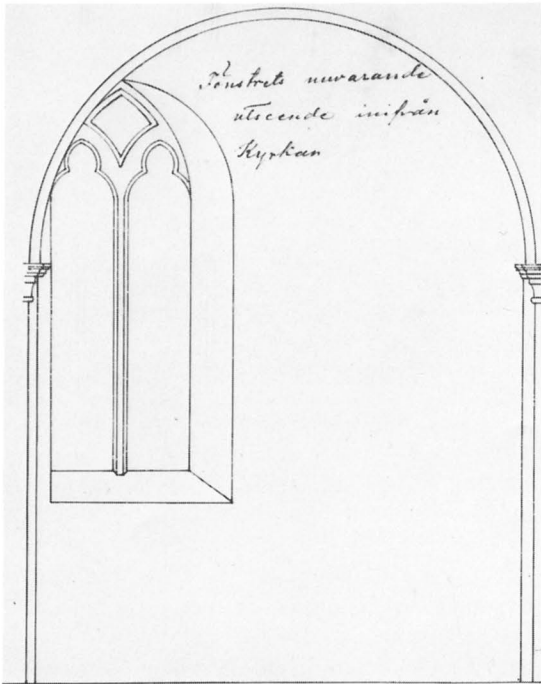 Fönstrets nuvarande
utseende inifrån
Kyrkan